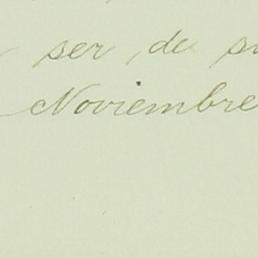 ser, de su
Noviembre